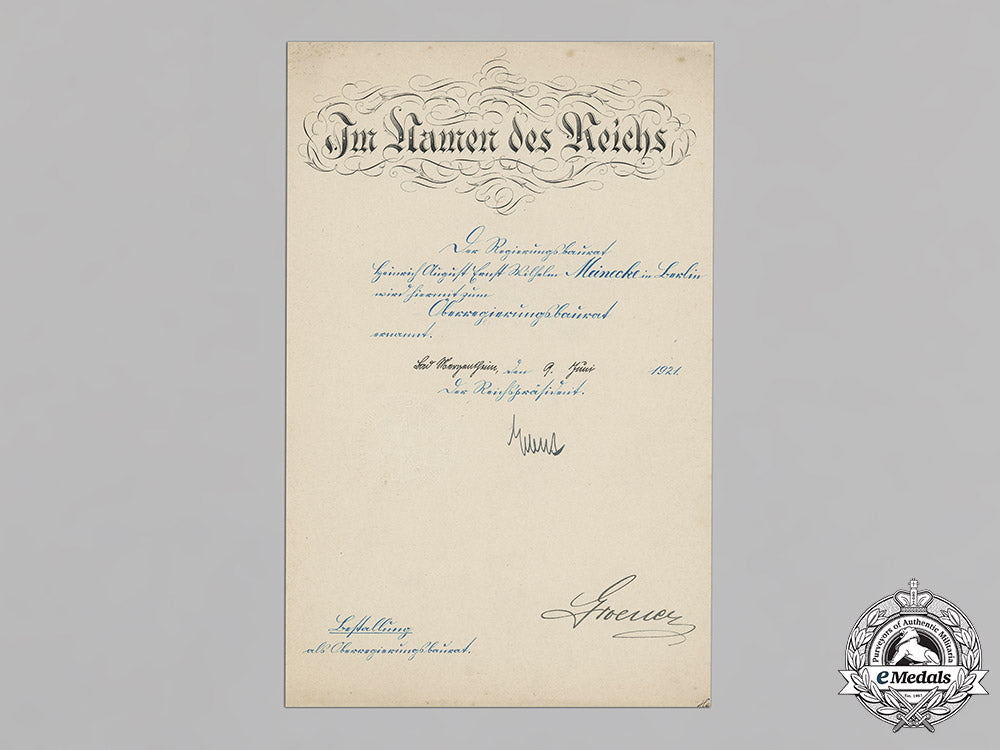 Im Namen des Reichs
Der Regierungsbaurat
Heinrich August Ernst Wilhelm Meinecke in Berlin
wird hiermit zum
Oberregierungsbaurat
ernannt.
Bad Mergentheim, den 9. Juni 1921.
Der Reichspräsident.
Ebert
Groener
Bestallung
als Oberregierungsbaurat.
Purveyors of Authentic Militaria
eMedals